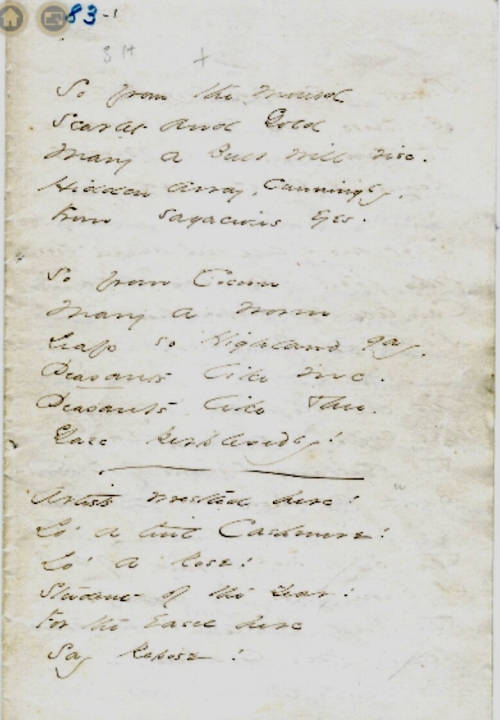 83-1
So from the mould
Scarlet and Gold
Many a Bulb will rise.
Hidden away, Cunningly,
From sagacious eyes.
So from Cocoon
Many a Worm
Leap so Highland gay,
Peasants like me.
Peasants like Thee.
Gaze perplexedly!
Artists wrestled here!
Lo' a tint Cashmere!
Lo' a Rose!
Student of the Year!
For the Easel here
Say Repose!